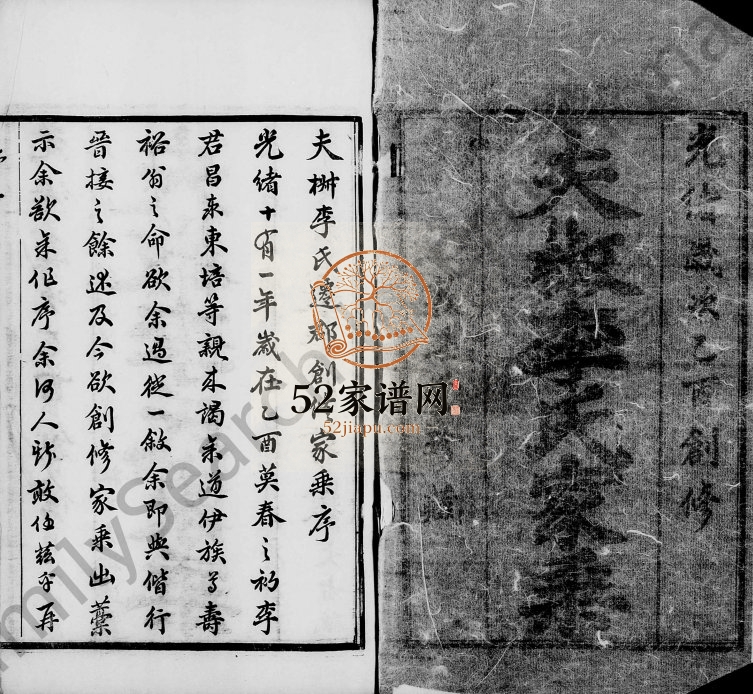 光緒歲次乙酉創修
夫椒李氏家乘
夫椒李氏遷 創 家乘序
光緒十有一年歲在乙酉莫春之初李
君昌來東培等親來謁余道伊族 壽
裕翁之命欲余過從一敘余即與偕行
晉接之餘遞及今欲創修家乘出藁
示余欲余作序余何人斯敢任茲乎再
52家谱网
52jiapu.com
FamilySearch